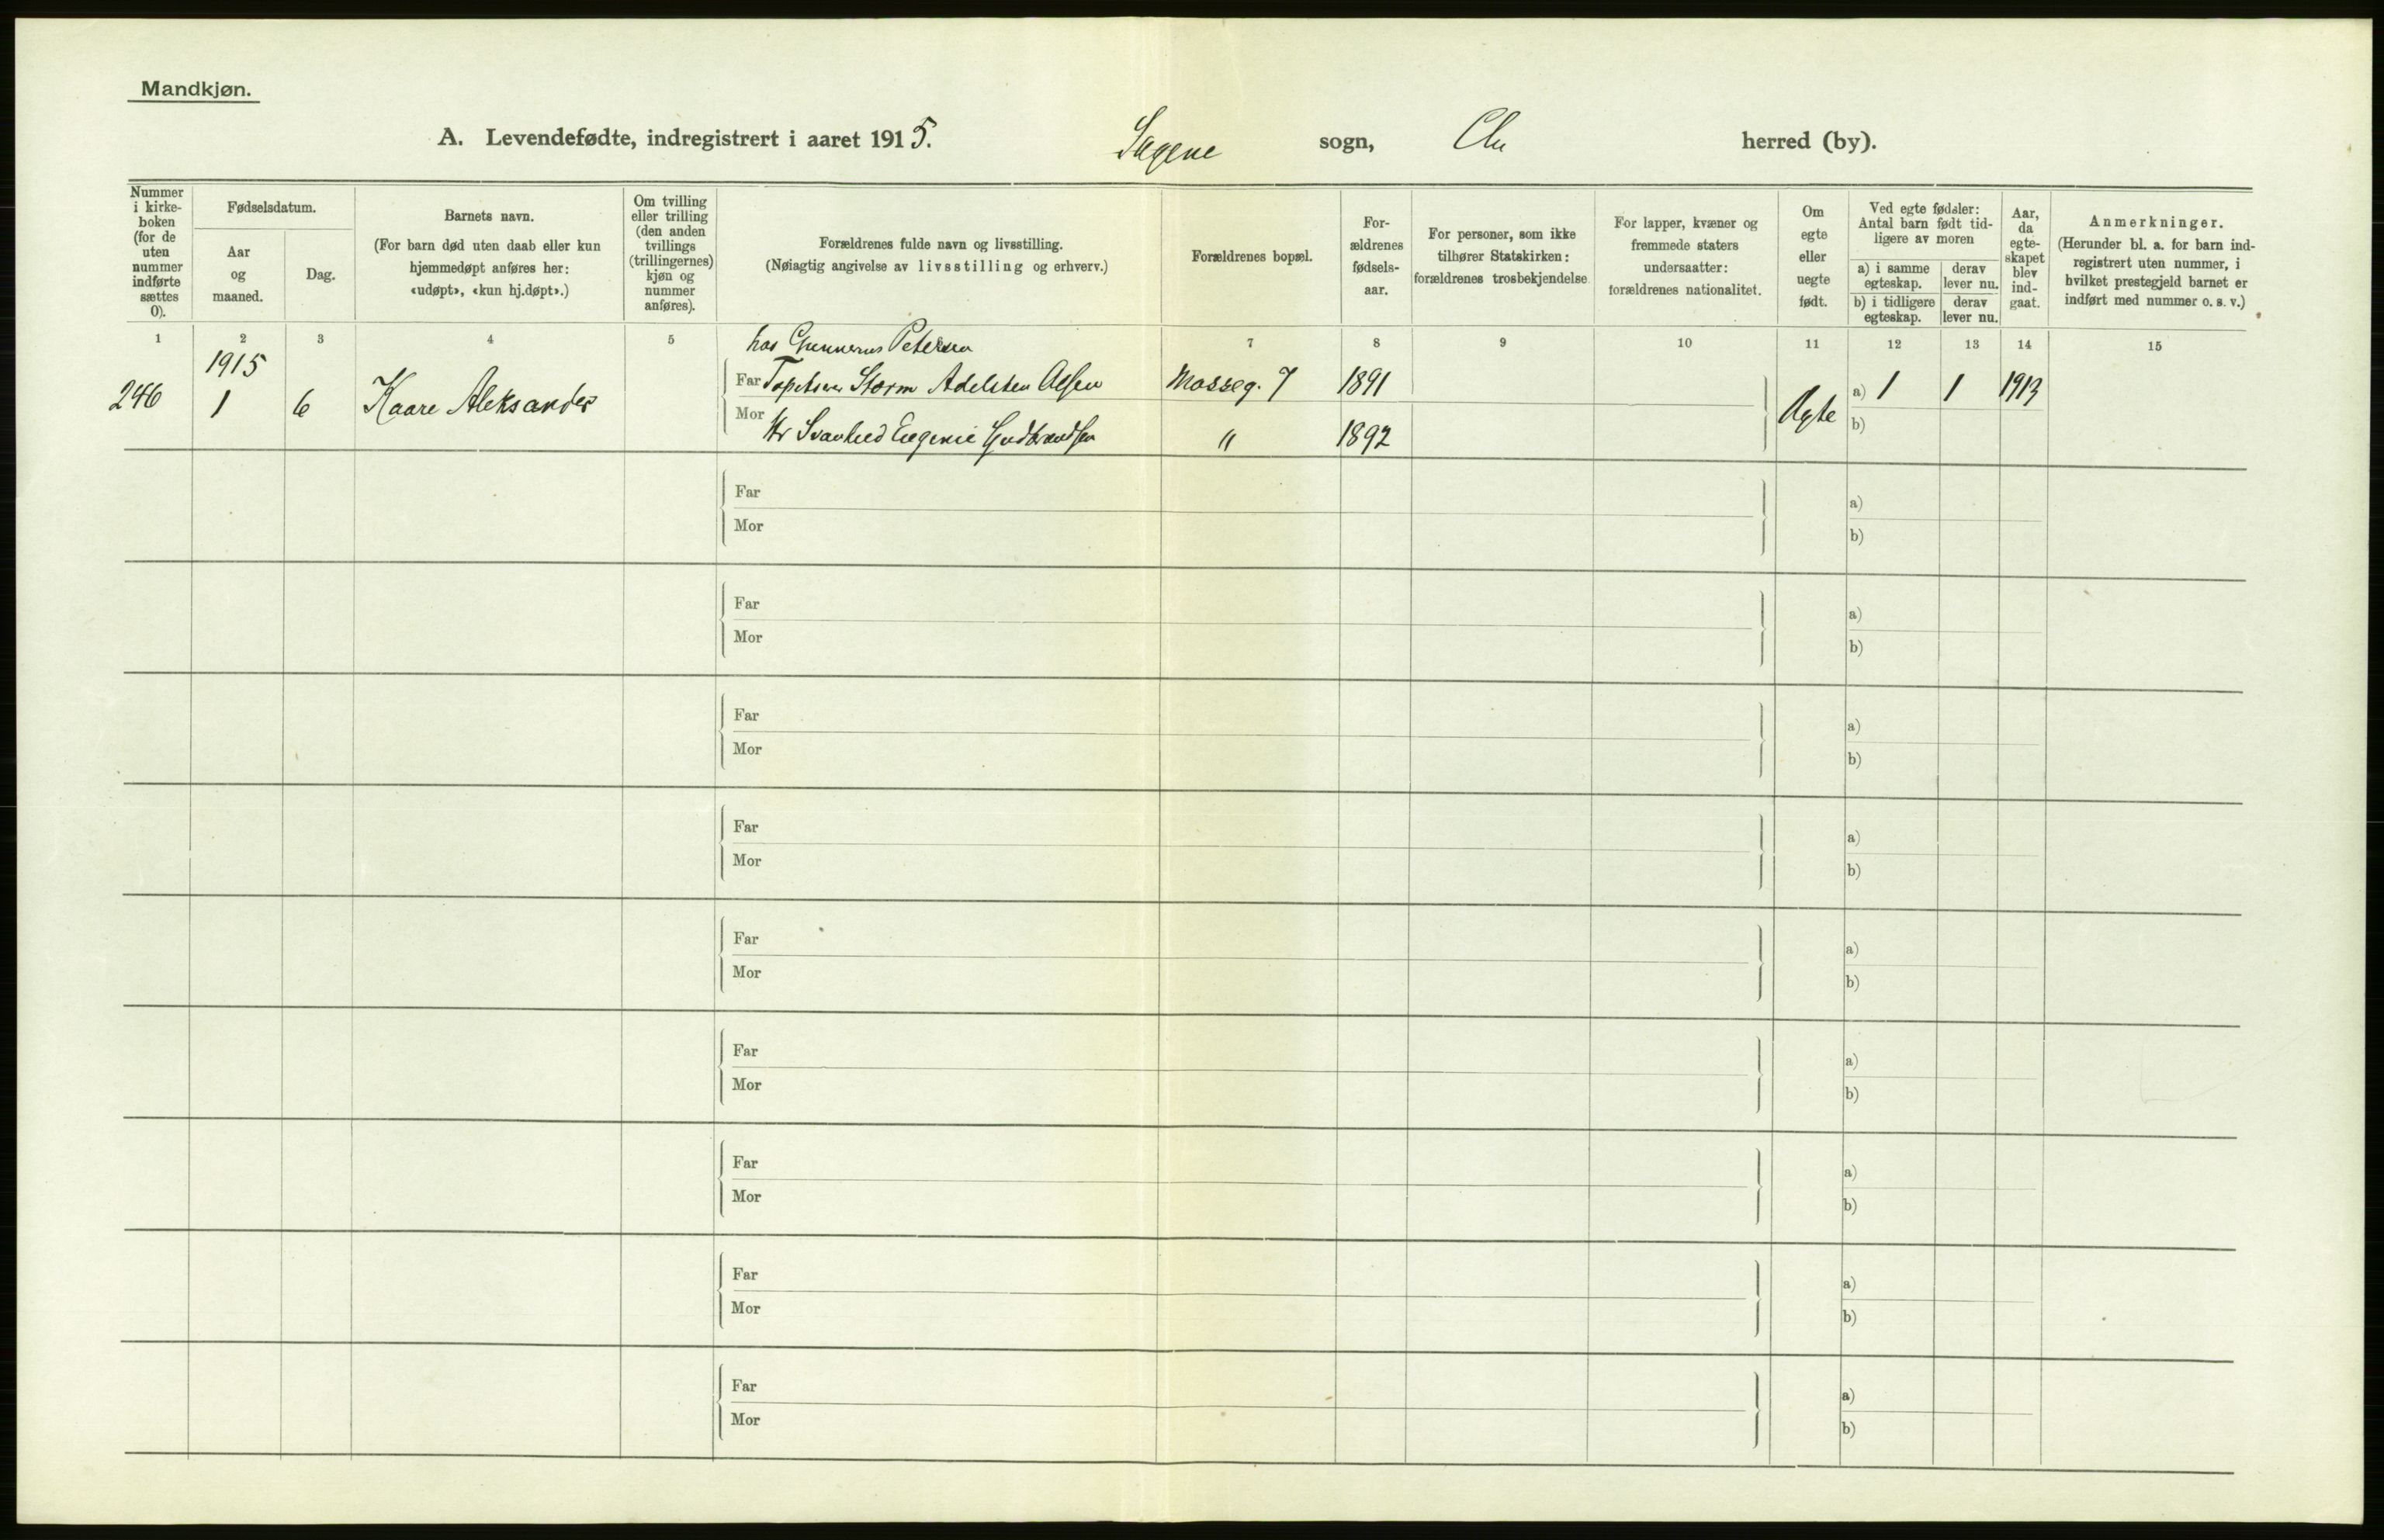 Mandkjøn.
A. Levendefødte, indregistrert i aaret 1915. Sagene sogn, Chr herred (by).
Nummer i kirke-
boken
(for de
uten
nummer
indførte
sættes
0).
Fødselsdatum.
Aar
og
maaned.
Dag.
Barnets navn.
(For barn død uten daab eller kun
hjemmedøpt anføres her:
«udøpt», «kun hj.døpt».)
Om tvilling
eller trilling
(den anden
tvillings
(trillingernes)
kjøn og
nummer
anføres).
Forældrenes fulde navn og livsstilling.
(Nøiagtig angivelse av livsstilling og erhverv.)
Forældrenes bopæl.
For-
ældrenes
fødsels-
aar.
For personer, som ikke
tilhører Statskirken:
forældrenes trosbekjendelse
For lapper, kvæner og
fremmede staters
undersaatter:
forældrenes nationalitet.
Om
egte
eller
uegte
født.
Ved egte fødsler:
Antal barn født tid-
ligere av moren
a) i samme
egteskap.
derav
lever nu.
b) i tidligere
egteskap.
derav
lever nu.
Aar,
da
egte-
skapet
blev
ind-
gaat.
Anmerkninger.
(Herunder bl. a. for barn ind-
registrert uten nummer, i
hvilket prestegjeld barnet er
indført med nummer o. s. v.)
1 2 3 4 5 7 8 9 10 11 12 13 14 15
hos Gunnerus Petersen
1915
246 1 6 Kaare Aleksander
Far Tapetserer Storm Adelsten Olsen Mosseg. 7 1891
Mor Hr Svanhild Eugenie Gudbrandsen " 1892
Egte a) 1 1 1913
b)
Far a)
Mor b)
Far a)
Mor b)
Far a)
Mor b)
Far a)
Mor b)
Far a)
Mor b)
Far a)
Mor b)
Far a)
Mor b)
Far a)
Mor b)
Far a)
Mor b)